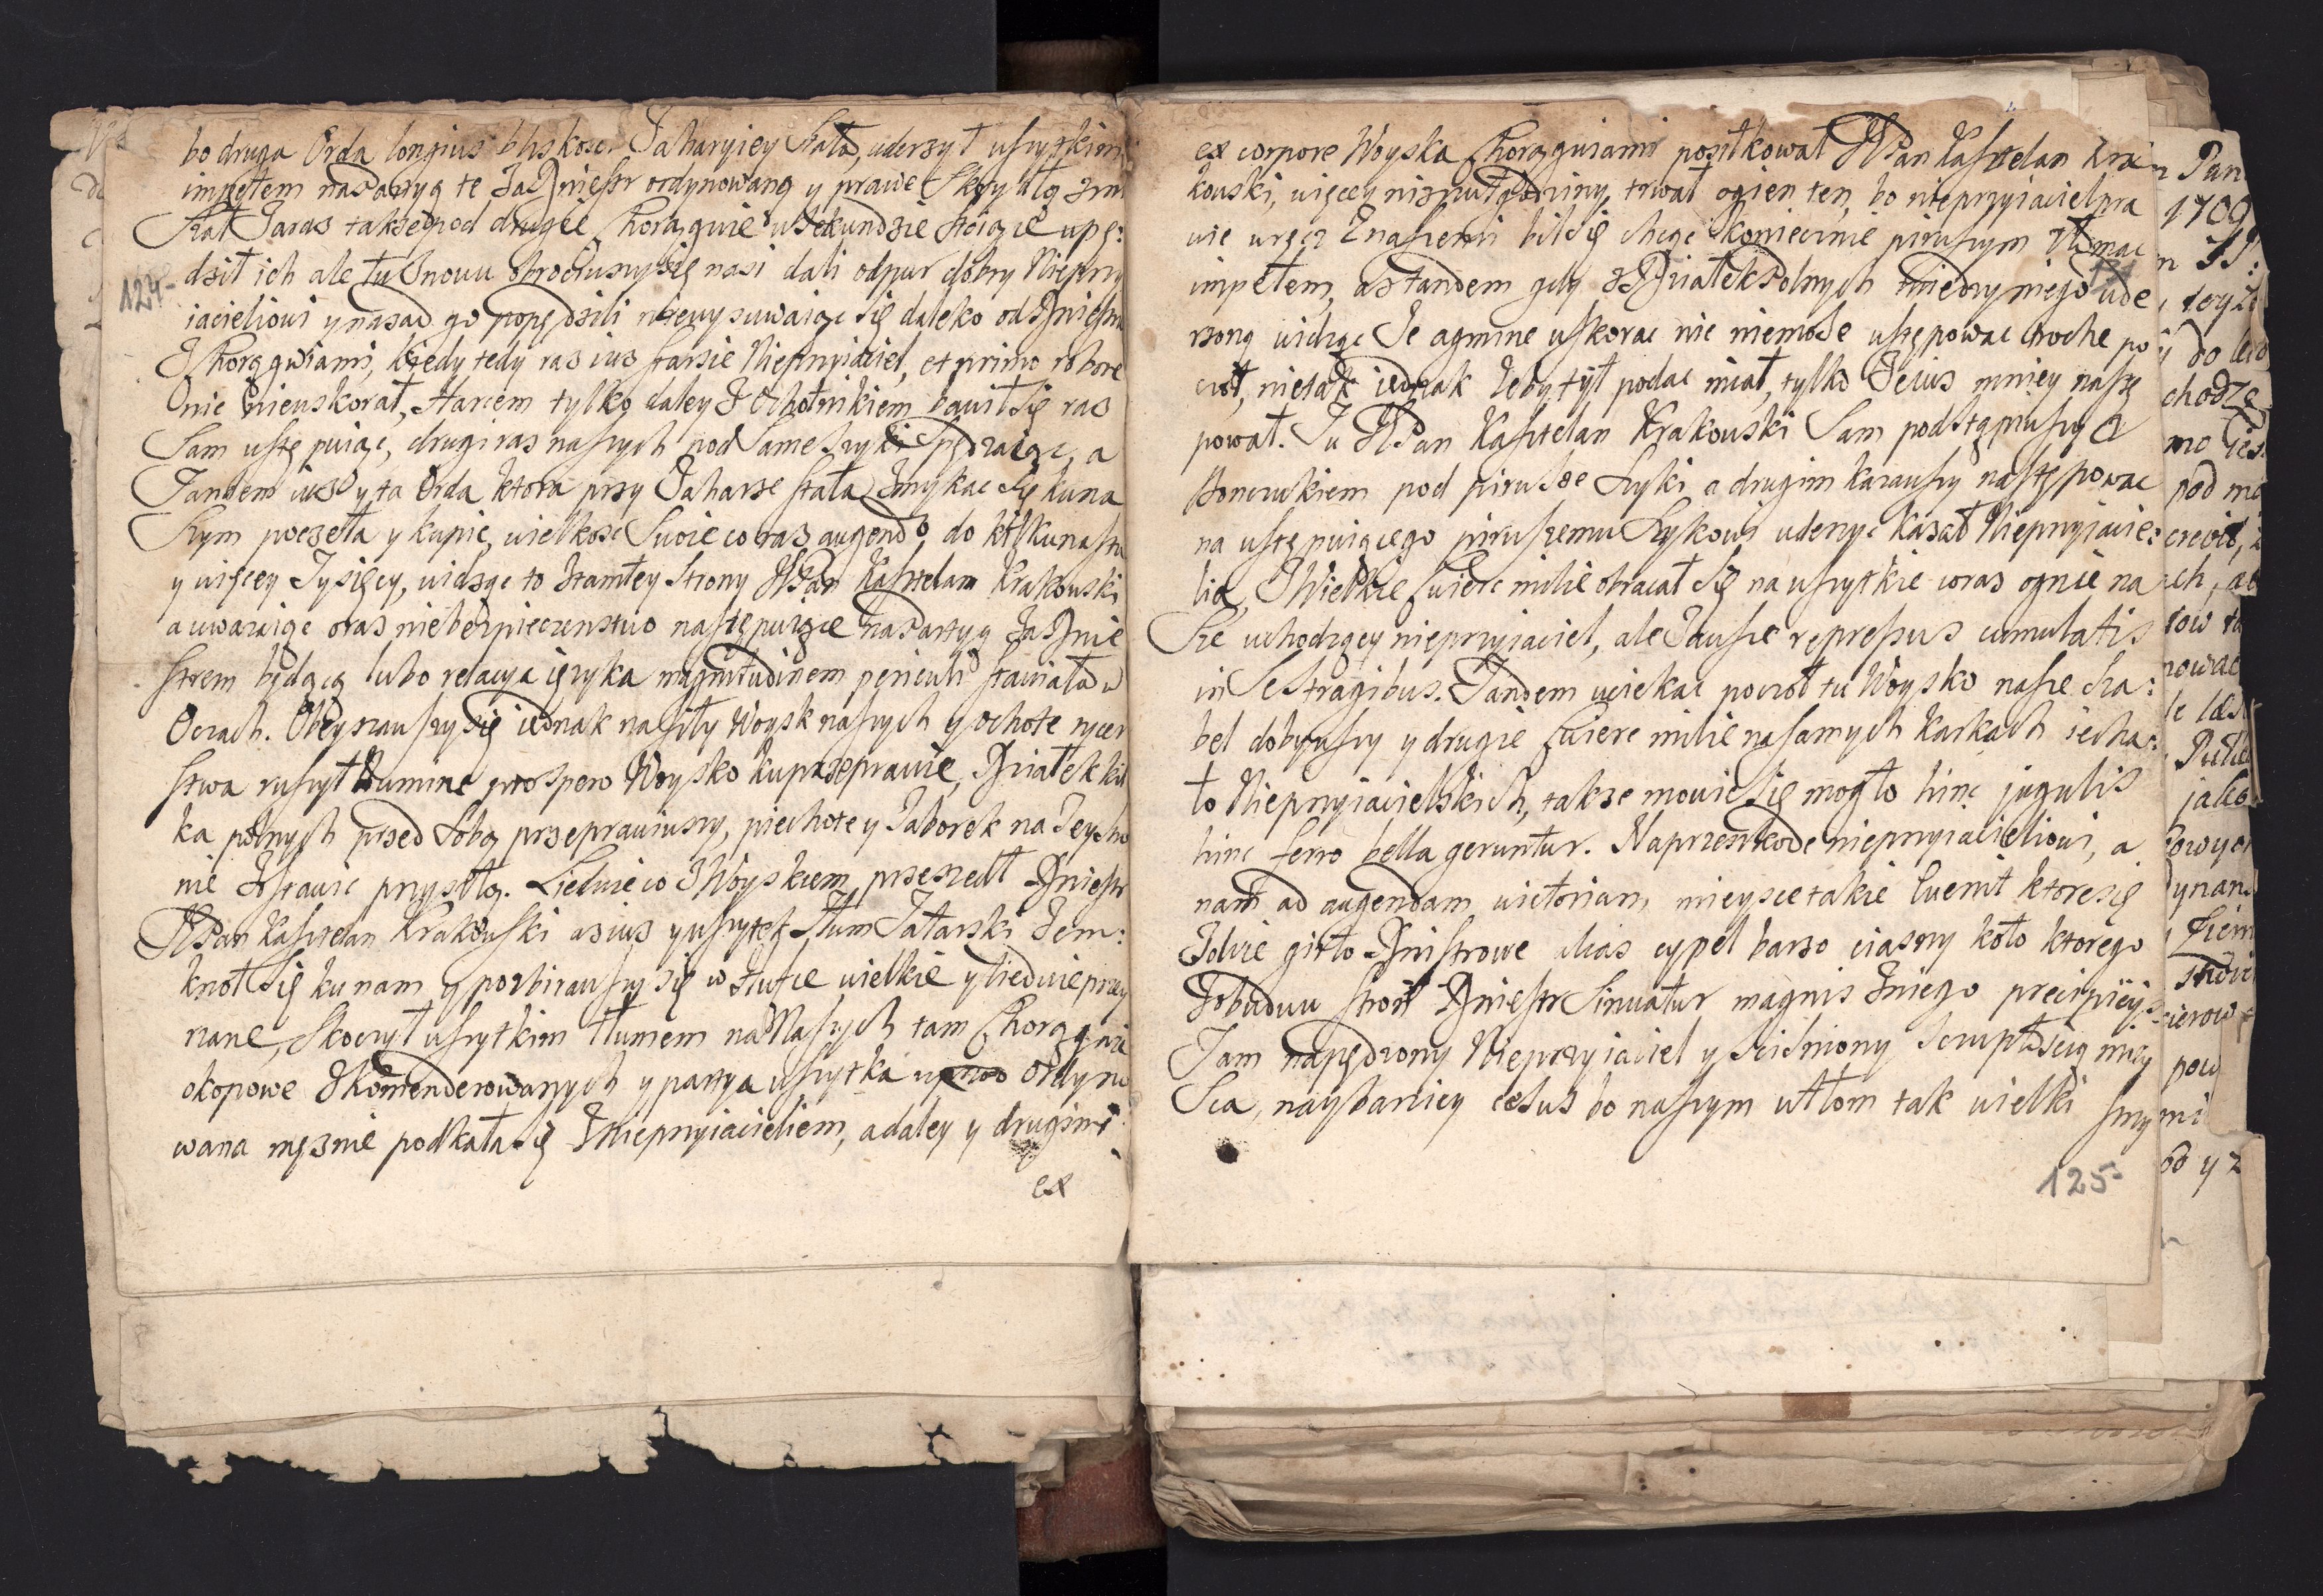 bo druga Orda longius blisko Saharyiey stała, uderzył wszytkim
impetem na Partyą tę za Dniestr ordynowaną y prawe skrzydło zm
zaraz także pod drugie Chorągwie w sekundzie stoiące upę:
dził ich ale tu znowu obrociwszy się nasi dali odpur dobry Nieprzy
124-
iacielowi y nasad go popędzili niewysuwaiąc się daleko od Dniestru
z Chorągwiami, kiedy tedy raz iuż starsie Nieprzyiaciel, et primo robore
nic niewskorał, Harcem tylko daley z Ochotnikiem bawił się raz
Sam ustępuiąc, drugi raz naszych pod same szyki spędzaiąc, a
Tandem iuż y ta Orda ktora przy Saharze stała zmykac się ku na
szym poczeła y kupic, wielkosc swoie coraz augendo, do kilkunastu
y więcey Tysięcy, widząc to z tamtey strony JPan Kasztelan Krakowski
a uwazaiąc oraz niebezpieczenstwo następuiące na Partyą za Dnie
strem będącą lubo relacya ięzyka magnitudinem periculi stawiała w
Oczach. Obeyzrawszy się iednak na siły Woysk naszych y ochote rycer
stwa ruszył Numine prospero Woysko ku przeprawie, Dziatek kil
ka polnych przed sobą przeprawiwszy, piechote y Taborek na tey stro
nie zostawic przyszło. Ledwie co z Woyskiem przeszedł Dniestr
JPan Kasztelan Krakowski aż iuż y wszytek Tłum Tatarski zem:
knoł się ku nam y pozbirawszy się w Hufce wielkie y ledwie przey
rzane, skoczył wszytkim tłumem na Naszych tam Chorągwie
okopowe zkomenderowanych y partya wszytka ordyno
wana mężnie potkała się z Nieprzyiacielem, a daley y drugimi
ex
ex corpore Woyska Chorągwiami posiłkował JPan Kasztelan Kra
kowski, więcey niz puł godziny trwał ogien ten, bo nieprzyiaciel pra
wie wręcz z naszemi bił się chcąc koniecznie pirwszym złamac
impetem, aż tandem gdy z Dziatek Polnych miedzy niego ude
rzono widząc ze agmine wskorac nic niemoże ustępowac troche po
czoł, nie tak iednak zeby tył podac miał, tylko ze iuż mniey nastę
pował. Tu JPan Kasztelan Krakowski Sam podstąpiwszy z
Bonczukiem pod pirwsze szyki a drugim kazawszy następowac
na ustępuiącego pirwszemu szykowi uderzyc kazał Nieprzyiacie:
lia, z Wielkie cwierc milie obracał się na wszytkie coraz ognie na
sze uchodzący nieprzyiaciel, ale zawsze repressus cumulatis
in se stragibus. Tandem uciekac poczoł tu Woysko nasze sza:
bel dobywszy y drugie cwierc milie na samych karkach iecha:
ło Nieprzyiacielskich, także mowic się mogło hinc jugulis
hinc ferro bella geruntur. Na przeszkode nieprzyiacielowi, a
nam ad augendam victoriam, mieysce takie ktore się
zdwie girło Dnistrowe alias cypel barzo ciasny koło ktorego
z obudwu stron Dniestr Sinuatur magnis z niego precipitijs
Tam napędzony Nieprzyiaciel y scisniony szczupłoscią miey
sca, naybarziey cesus bo naszym w tłom tak wielki strzy
125-
Pan
1709
do
chodzę
pod
jako
pow
od y z